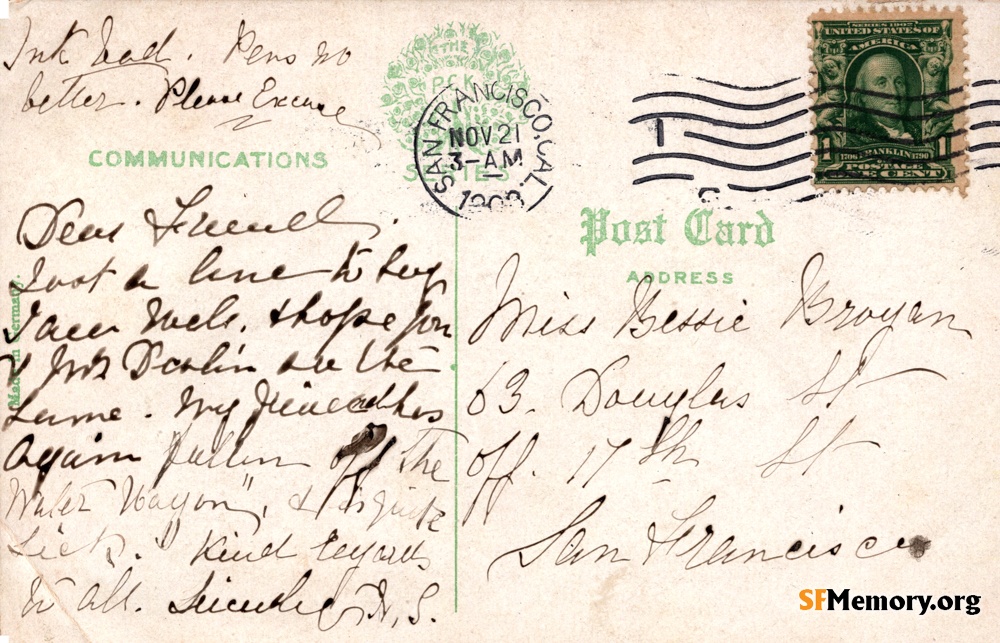 Ink bad. Pens no
better. Please Excuse
THE
P.C.K.
SERIES
COMMUNICATIONS
SAN FRANCISCO, CAL.
NOV 21
3-AM
1908
1
SERIES 1902
UNITED STATES OF
AMERICA
1 1706 FRANKLIN 1790 1
POSTAGE
ONE CENT
Post Card
ADDRESS
Made in Germany.
Dear Friend.
Just a line to say
I am well. & hope you
& Mrs Devlin are the
same. My friend has
again fallen off the
Water Wagon", & is quite
sick." Kind regards
to all. Sincerely, H. S.
Miss Bessie Brogan
63. Douglas St
off. 17th St
San Francisco
SFMemory.org